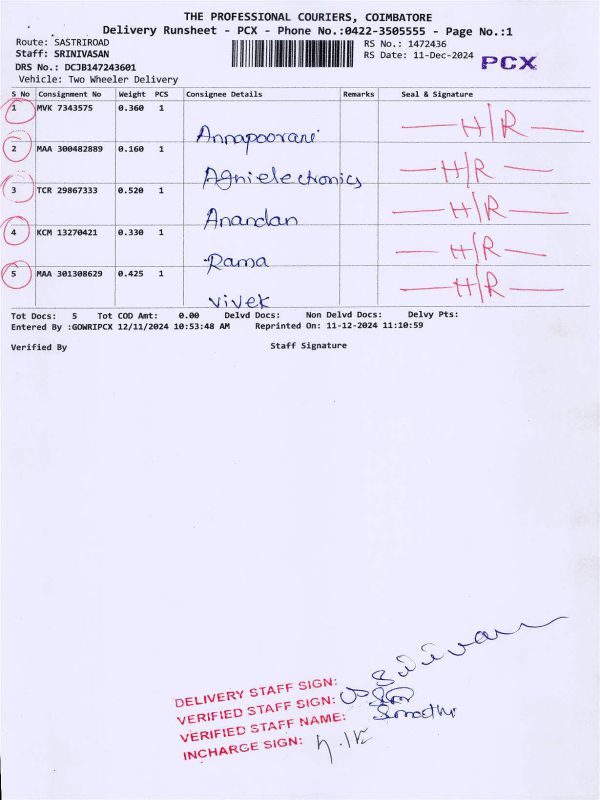 THE PROFESSIONAL COURIERS, COIMBATORE
Delivery Runsheet - PCX - Phone No.:0422-3505555 - Page No.:1
Route: SASTRIROAD
RS No.: 1472436
Staff: SRINIVASAN
RS Date: 11-Dec-2024 PCX
DRS No.: DCJB147243601
Vehicle: Two Wheeler Delivery
S No Consignment No Weight PCS Consignee Details Remarks Seal & Signature
1 MVK 7343575 0.360 1 Annapoorani H/R
2 MAA 300482889 0.160 1 Agnielectronics H/R
3 TCR 29867333 0.520 1 Anandan H/R
4 KCM 13270421 0.330 1 Rama H/R
5 MAA 301308629 0.425 1 vivek H/R
Tot Docs: 5 Tot COD Amt: 0.00 Delvd Docs: Non Delvd Docs: Delvy Pts:
Entered By :GOWRIPCX 12/11/2024 10:53:48 AM Reprinted On: 11-12-2024 11:10:59
Verified By Staff Signature
DELIVERY STAFF SIGN:
VERIFIED STAFF SIGN:
VERIFIED STAFF NAME:
INCHARGE SIGN: